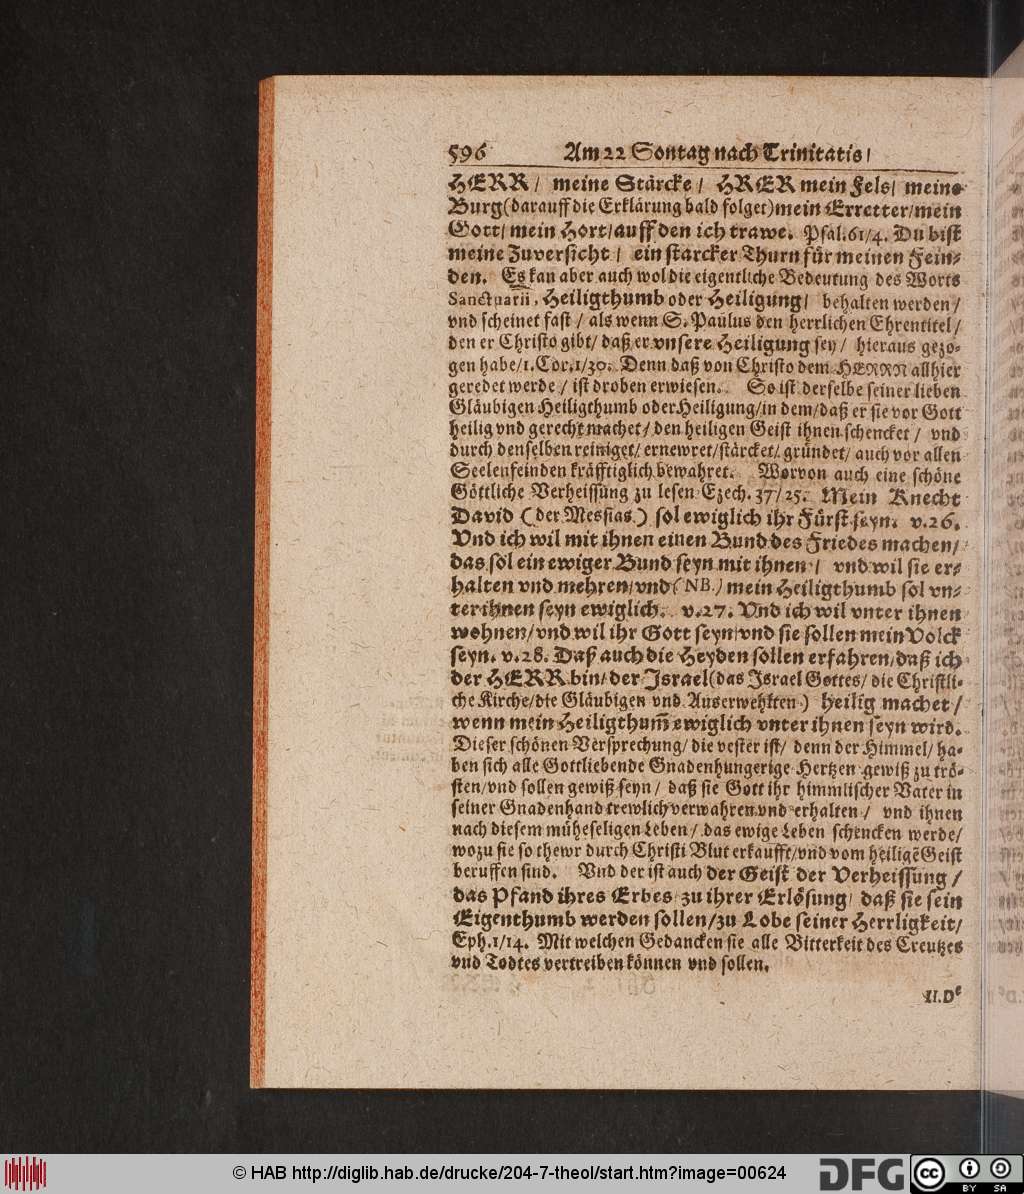 596 Am 22 Sontag nach Trinitatis/
HERR/ meine Stärcke/ HRER mein Fels/ meine
Burg (darauff die Erklärung bald folget) mein Erretter/mein
Gott/ mein Hort/ auff den ich trawe. Psal. 61/4. Du bist
meine Zuversicht/ ein starcker Thurn für meinen Fein-
den. Es kan aber auch wol die eigentliche Bedeutung des Worts
Sanctuarii, Heiligthumb oder Heiligung/ behalten werden/
vnd scheinet fast/ als wenn S. Paulus den herrlichen Ehrentitel/
den er Christo gibt/ daß er vnsere Heiligung sey/ hieraus gezo-
gen habe/1. Cor.1/30. Denn daß von Christo dem HERRN allhier
geredet werde/ ist droben erwiesen. So ist derselbe seiner lieben
Gläubigen Heiligthumb oder Heiligung/in dem/daß er sie vor Gott
heilig vnd gerecht machet/ den heiligen Geist ihnen schencket/ vnd
durch denselben reiniget/ ernewret/stärcket/ gründet/ auch vor allen
Seelenfeinden kräfftiglich bewahret. Worvon auch eine schöne
Göttliche Verheissung zu lesen Ezech. 37/25. Mein Knecht
David (der Messias) sol ewiglich ihr Fürst seyn. v.26.
Vnd ich wil mit ihnen einen Bund des Friedes machen/
das sol ein ewiger Bund seyn mit ihnen/ vnd wil sie er-
halten vnd mehren/vnd (NB.) mein Heiligthumb sol vn-
ter ihnen seyn ewiglich. v.27. Vnd ich wil vnter ihnen
wohnen/vnd wil ihr Gott seyn/vnd sie sollen mein Volck
seyn. v.28. Daß auch die Heyden sollen erfahren/daß ich
der HERR bin/ der Israel (das Israel Gottes/ die Christli-
che Kirche/die Gläubigen vnd Auserwehlten) heilig machet/
wenn mein Heiligthum̃ ewiglich vnter ihnen seyn wird.
Dieser schönen Versprechung/ die vester ist/ denn der Himmel/ ha-
ben sich alle Gottliebende Gnadenhungerige Hertzen gewiß zu trö-
sten/vnd sollen gewiß seyn/ daß sie Gott ihr himmlischer Vater in
seiner Gnadenhand trewlich verwahren vnd erhalten/ vnd ihnen
nach diesem müheseligen Leben/ das ewige Leben schencken werde/
wozu sie so thewr durch Christi Blut erkaufft/vnd vom heiligẽ Geist
beruffen sind. Vnd der ist auch der Geist der Verheissung/
das Pfand ihres Erbes zu ihrer Erlösung/ daß sie sein
Eigenthumb werden sollen/zu Lobe seiner Herrligkeit/
Eph.1/14. Mit welchen Gedancken sie alle Bitterkeit des Creutzes
vnd Todtes vertreiben können vnd sollen.
II. Dᵉ
© HAB http://diglib.hab.de/drucke/204-7-theol/start.htm?image=00624
DFG
cc BY SA